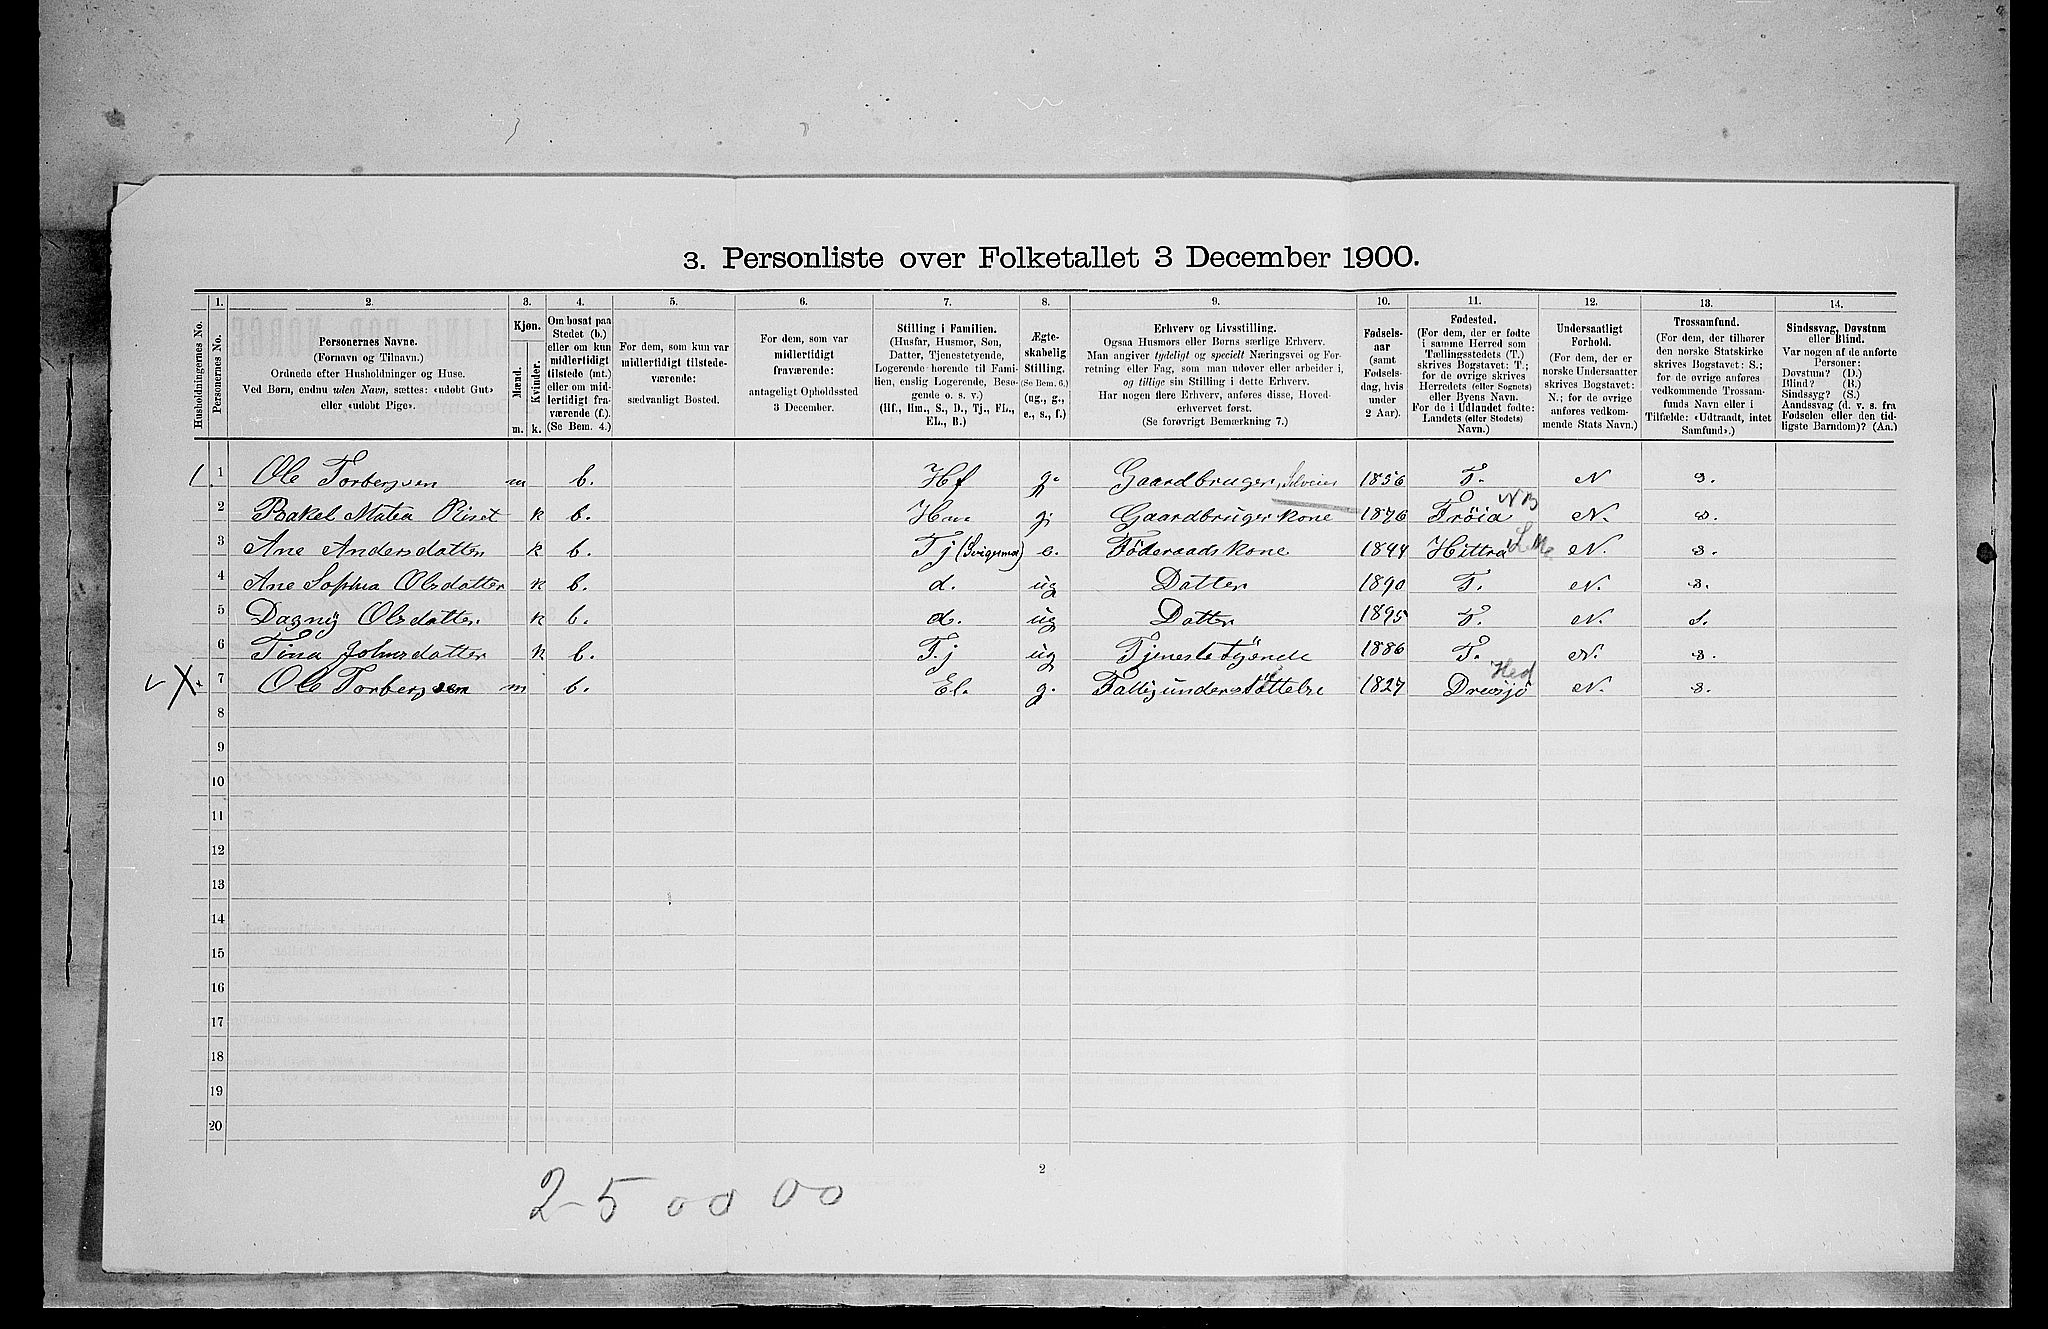 3. Personliste over Folketallet 3 December 1900.
1. 2. 3. 4. 5. 6. 7. 8. 9. 10. 11. 12. 13. 14.
Husholdningernes No.
Personernes No.
Personernes Navne.
(Fornavn og Tilnavn.)
Ordnede efter Husholdninger og Huse.
Ved Børn, endnu uden Navn, sættes: «udøbt Gut»
eller «udøbt Pige».
Kjøn.
Mænd.
Kvinder.
m. k.
Om bosat paa
Stedet (b.)
eller om kun
midlertidigt
tilstede (mt.)
eller om mid-
lertidigt fra-
værende (f.).
(Se Bem. 4.)
For dem, som kun var
midlertidigt tilstede-
værende:
sædvanligt Bosted.
For dem, som var
midlertidigt
fraværende:
antageligt Opholdssted
3 December.
Stilling i Familien.
(Husfar, Husmor, Søn,
Datter, Tjenestetyende,
Logerende hørende til Fami-
lien, enslig Logerende, Besø-
gende o. s. v.)
(Hf., Hm., S., D., Tj., FL.,
EL., B.)
Ægte-
skabelig
Stilling.
(Se Bem. 6.)
(ug., g.,
e., s., f.)
Erhverv og Livsstilling.
Ogsaa Husmors eller Børns særlige Erhverv.
Man angiver tydeligt og specielt Næringsvei og For-
retning eller Fag, som man udøver eller arbeider i,
og tillige sin Stilling i dette Erhverv.
Har nogen flere Erhverv, anføres disse, Hoved-
erhvervet først.
(Se forøvrigt Bemærkning 7.)
Fødsels-
aar
(samt
Fødsels-
dag, hvis
under
2 Aar).
Fødested.
(For dem, der er fødte
i samme Herred som
Tællingsstedets (T.)
skrives Bogstavet: T.;
for de øvrige skrives
Herredets (eller Sognets)
eller Byens Navn.
For de i Udlandet fødte:
Landets (eller Stedets)
Navn.)
Undersaatligt
Forhold.
(For dem, der er
norske Undersaatter
skrives Bogstavet:
N.; for de øvrige
anføres vedkom-
mende Stats Navn.)
Trossamfund.
(For dem, der tilhører
den norske Statskirke
skrives Bogstavet: S.;
for de øvrige anføres
vedkommende Trossam-
funds Navn eller i
Tilfælde: «Udtraadt, intet
Samfund».)
Sindssvag, Døvstum
eller Blind.
Var nogen af de anførte
Personer:
Døvstum? (D.)
Blind? (B.)
Sindssyg? (S.)
Aandssvag (d. v. s. fra
Fødselen eller den tid-
ligste Barndom)? (Aa.)
1 1 Ole Torbergsen m b. Hf g. Gaardbruger, Selveier 1856 T. N s.
2 Rakel Matea Riset k b. Hm g. Gaardbrugerkone 1876 Fröia NB N. s.
3 Ane Andersdatter k b. Tj (Svigermor) e. Föderaadskone 1844 Hittra N. s.
4 Ane Sophia Olsdatter k b. d. ug Datter 1890 T. N. s.
5 Dagny Olsdatter k b. d. ug Datter 1895 T. N. s.
6 Tina Johnsdatter k b. Tj ug Tjenestetyende 1886 T. N. s.
X 7 Ole Torbergsen m b. El. g. Fattigunderstöttelse 1827 Hed N. s.
8
9
10
11
12
13
14
15
16
17
18
19
20
2
2-5 00 00